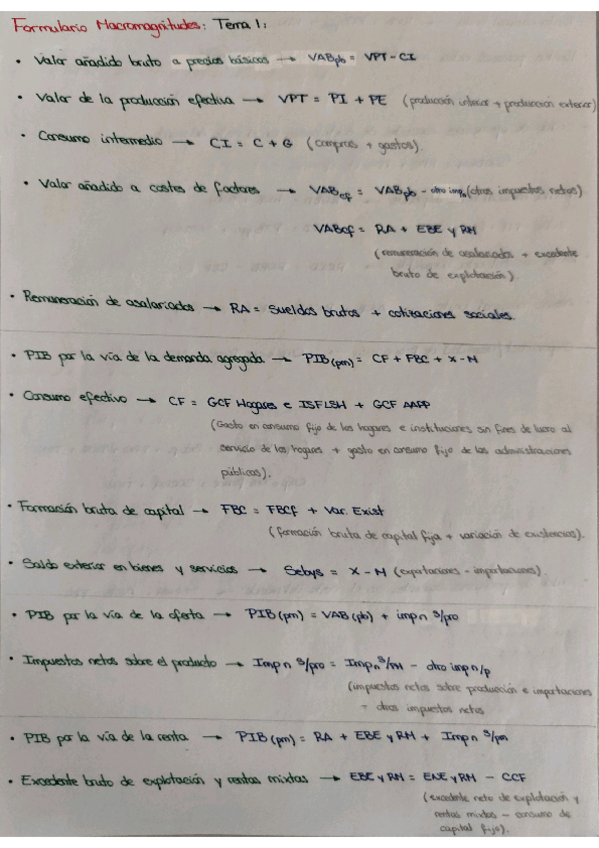 Formulario Macromagnitudes: Tema 1:
• Valor añadido bruto a precios básicos → VABpb = VPT - CI
• Valor de la producción efectiva → VPT = PI + PE (producción interior + producción exterior)
• Consumo intermedio → CI = C + G (compras + gastos).
• Valor añadido a costes de factores → VABcf = VABpb - otro impn (otros impuestos netos)
VABcf = RA + EBE y RM
(remuneración de asalariados + excedente
bruto de explotación).
• Remuneración de asalariados → RA = sueldos brutos + cotizaciones sociales.
• PIB por la vía de la demanda agregada → PIB(pm) = CF + FBC + X - M
• Consumo efectivo → CF = GCF Hogares e ISFLSH + GCF AAPP
(Gasto en consumo fijo de los hogares e instituciones sin fines de lucro al
servicio de los hogares + gasto en consumo fijo de las administraciones
públicas).
• Formación bruta de capital → FBC = FBCf + Var. Exist
(formación bruta de capital fija + variación de existencias).
• Saldo exterior en bienes y servicios → Sebys = X - M (exportaciones - importaciones).
• PIB por la vía de la oferta → PIB(pm) = VAB(pb) + imp n s/pro
• Impuestos netos sobre el producto → Imp n s/pro = Impn s/PM - otro imp n/p
(impuestos netos sobre producción e importaciones
- otros impuestos netos
• PIB por la vía de la renta → PIB(pm) = RA + EBE y RM + Imp n s/pm
• Excedente bruto de explotación y rentas mixtas → EBE y RM = ENE y RM - CCF
(excedente neto de explotación y
rentas mixtas - consumo de
capital fijo).